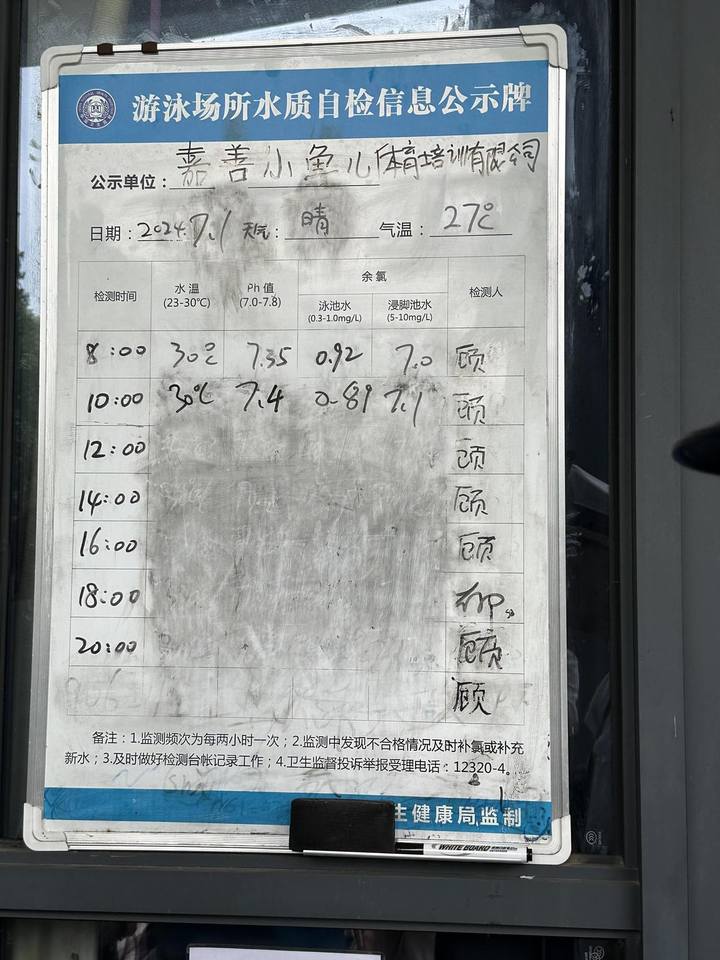 游泳场所水质自检信息公示牌
公示单位：嘉善小鱼儿体育培训有限公司
日期：2024.7.1 天气：晴 气温：27℃
检测时间 水温 (23-30℃) Ph 值 (7.0-7.8) 余氯 检测人
泳池水 (0.3-1.0mg/L) 浸脚池水 (5-10mg/L)
8:00 30℃ 7.35 0.92 7.0 顾
10:00 30℃ 7.4 0.89 7.1 顾
12:00 顾
14:00 顾
16:00 顾
18:00
20:00 顾
顾
备注：1.监测频次为每两小时一次；2.监测中发现不合格情况及时补氯或补充
新水；3.及时做好检测台帐记录工作；4.卫生监督投诉举报受理电话：12320-4。
生健康局监制
WHITE BOARD